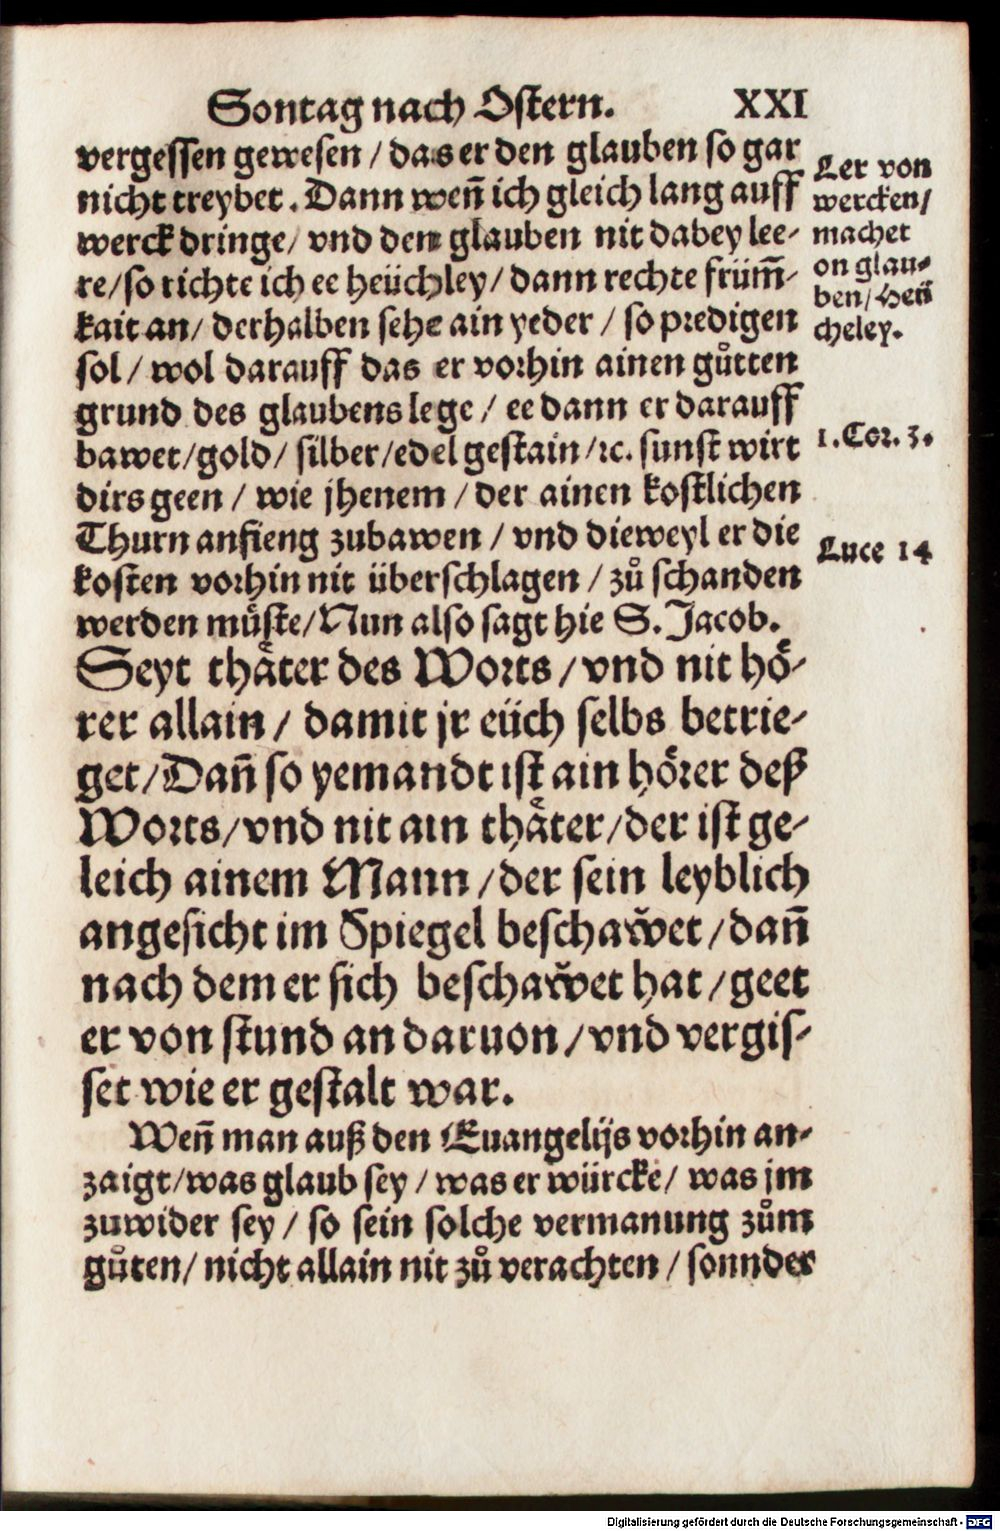 Sontag nach Ostern. XXI
vergessen gewesen / das er den glauben so gar
nicht treybet. Dann weñ ich gleich lang auff
werck dringe / vnd den glauben nit dabey lee-
re / so richte ich ee heüchley / dann rechte früm̃-
kait an / derhalben sehe ain yeder / so predigen
sol / wol darauff das er vorhin ainen gůtten
grund des glaubens lege / ee dann er darauff
bawet / gold / silber / edel gestain / ꝛc. sunst wirt
dirs geen / wie jhenem / der ainen kostlichen
Thurn anfieng zubawen / vnd dieweyl er die
kosten vorhin nit überschlagen / zů schanden
werden müste / Nun also sagt hie S. Jacob.
Seyt thäter des Worts / vnd nit hö-
rer allain / damit jr eüch selbs betrie-
get / Dañ so yemandt ist ain hörer deß
Worts / vnd nit ain thäter / der ist ge-
leich ainem Mann / der sein leyblich
angesicht im Spiegel beschawet / dañ
nach dem er sich beschawet hat / geet
er von stund an daruon / vnd vergis-
set wie er gestalt war.
Weñ man auß den Euangelijs vorhin an-
zaigt / was glaub sey / was er würcke / was jm
zuwider sey / so sein solche vermanung zům
gůten / nicht allain nit zů verachten / sonnder
Ler von
wercken /
machet
on glau-
ben / Heü
cheley.
1. Cor. 3.
Luce 14
Digitalisierung gefördert durch die Deutsche Forschungsgemeinschaft - DFG